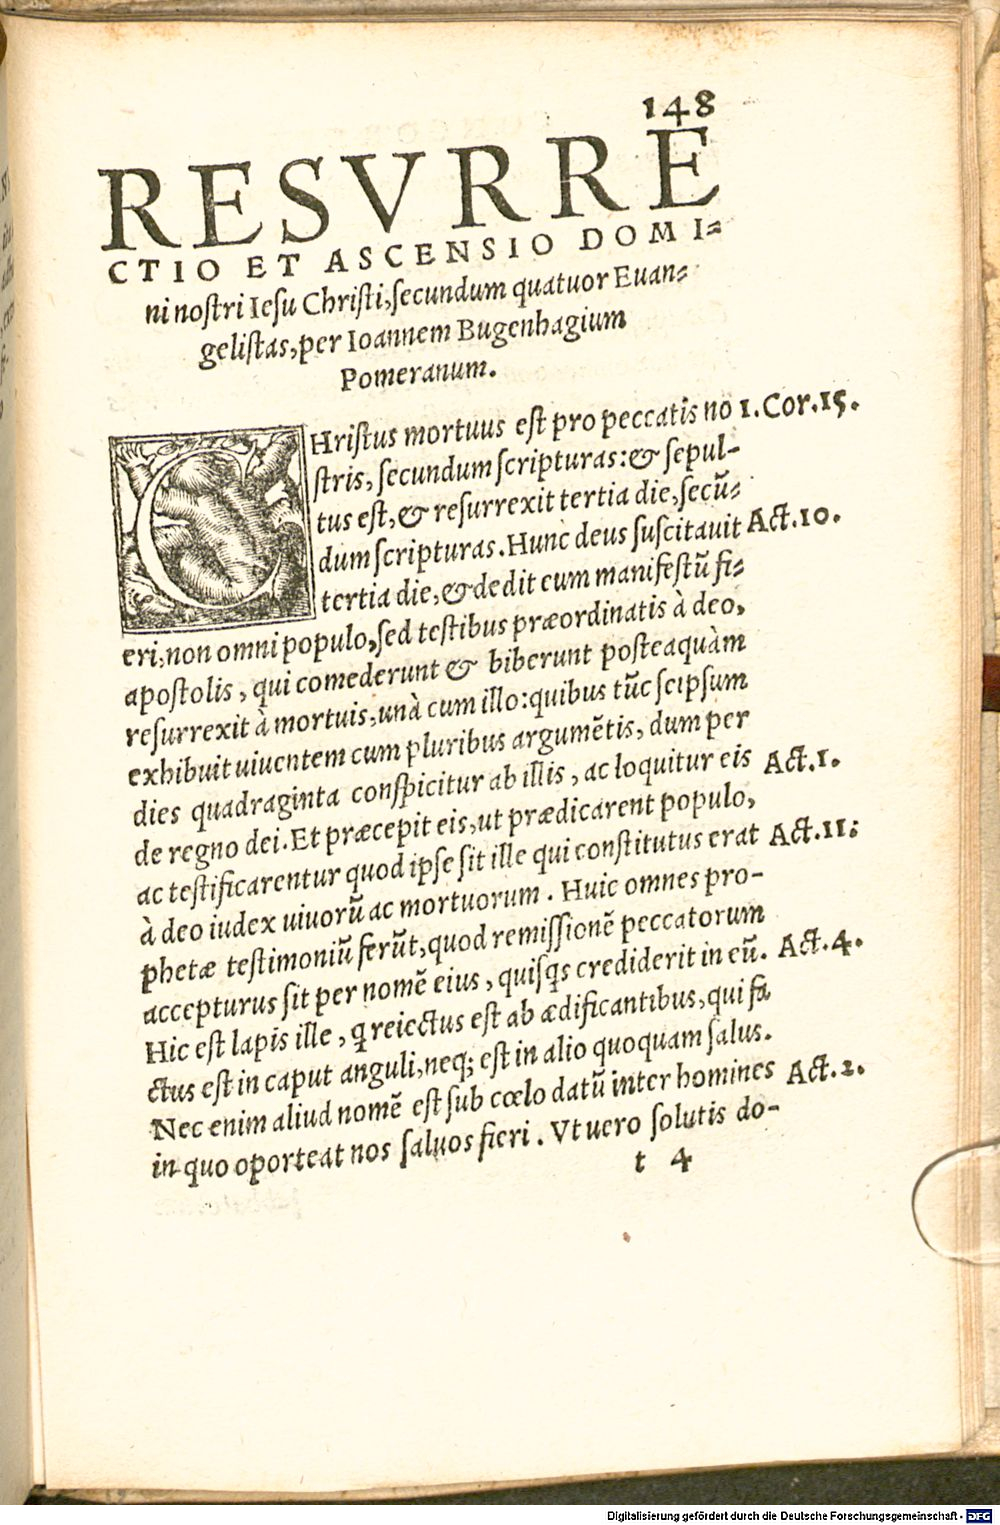 148
RESVRRE
CTIO ET ASCENSIO DOMI⸗
ni nostri Iesu Christi, secundum quatuor Euan⸗
gelistas, per Ioannem Bugenhagium
Pomeranum.
CHristus mortuus est pro peccatis no 1. Cor. 15.
stris, secundum scripturas: & sepul-
tus est, & resurrexit tertia die, secū⸗
dum scripturas. Hunc deus suscitauit Act. 10.
tertia die, & dedit eum manifestū fi⸗
eri, non omni populo, sed testibus præordinatis à deo,
apostolis, qui comederunt & biberunt posteaquàm
resurrexit à mortuis, unà cum illo: quibus tūc seipsum
exhibuit uiuentem cum pluribus argumētis, dum per
dies quadraginta conspicitur ab illis, ac loquitur eis Act. 1.
de regno dei. Et præcepit eis, ut prædicarent populo,
ac testificarentur quod ipse sit ille qui constitutus erat Act. 11:
à deo iudex uiuorū ac mortuorum. Huic omnes pro-
phetæ testimoniū ferūt, quod remissionē peccatorum
accepturus sit per nomē eius, quisqs crediderit in eū. Act. 4.
Hic est lapis ille, q reiectus est ab ædificantibus, qui fa
ctus est in caput anguli, neq; est in alio quoquam salus.
Nec enim aliud nomē est sub cœlo datū inter homines Act. 2.
in quo oporteat nos saluos fieri. Vt uero solutis do-
t 4
Digitalisierung gefördert durch die Deutsche Forschungsgemeinschaft - DFG